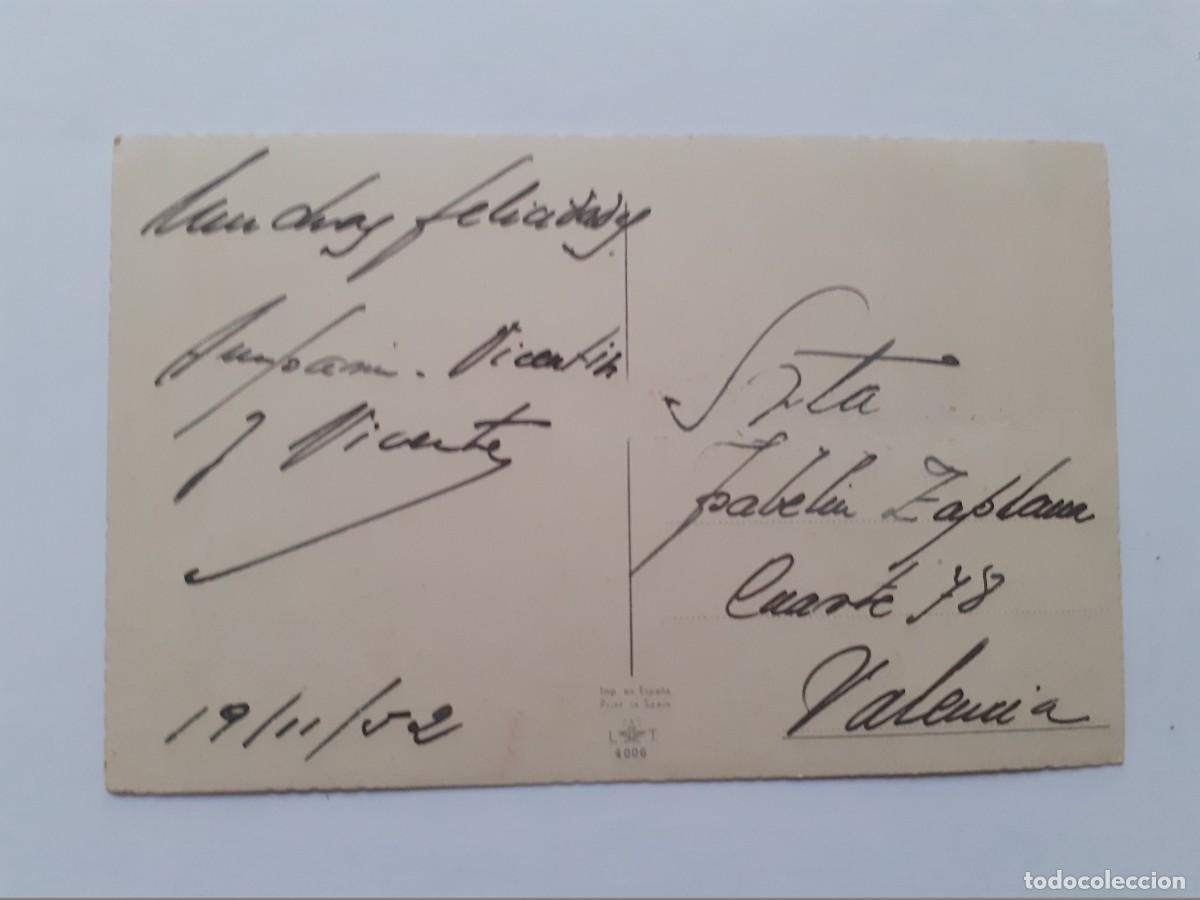 Muchas felicidades
Amparin - Vicentin
y Vicente
19/11/52
Srta
Isabelin Zaplana
Cuarte 78
Valencia
Imp. en España
Print in Spain
L T
4006
todocoleccion